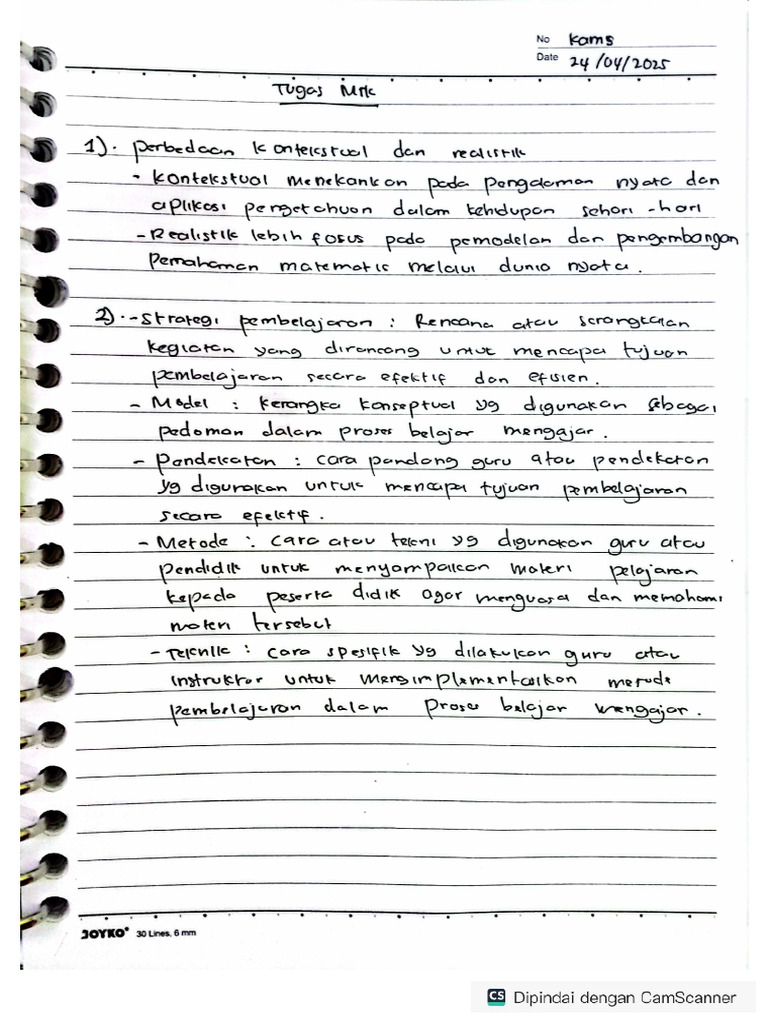 No Kams
Date 24/04/2025
Tugas Mrk
1). perbedaan kontekstual dan realistik
- kontekstual menekankan pada pengalaman nyata dan
aplikasi pengetahuan dalam kehidupan sehari-hari
- Realistik lebih fokus pada pemodelan dan pengembangan
pemahaman matematic melalui dunia nyata.
2). - strategi pembelajaran : Rencana atau serangkaian
kegiatan yang dirancang untuk mencapai tujuan
pembelajaran secara efektif dan efisien.
- Model : kerangka konseptual yg digunakan sebagai
pedoman dalam proses belajar mengajar.
- Pendekatan : cara pandang guru atau pendekatan
yg digunakan untuk mencapai tujuan pembelajaran
secara efektif.
- Metode : cara atau tekni yg digunakan guru atau
pendidik untuk menyampaikan materi pelajaran
kepada peserta didik agar menguasai dan memahami
materi tersebut
- Teknik : cara spesifik yg dilakukan guru atau
instruktor untuk mengimplementasikan metode
pembelajaran dalam proses belajar mengajar.
JOYKO 30 Lines, 6 mm
CS Dipindai dengan CamScanner